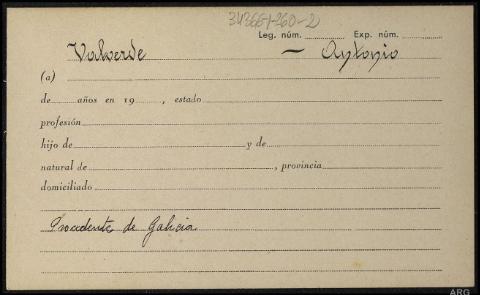 343661-260-2
Leg. núm. Exp. núm.
Valverde — Antonio
(a)
de años en 19 , estado
profesión
hijo de y de
natural de , provincia
domiciliado
Procedente de Galicia
ARG